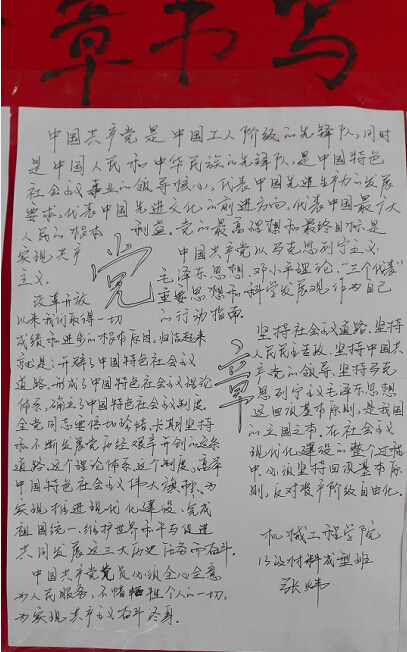 章书写
中国共产党是中国工人阶级的先锋队,同时
是中国人民和中华民族的先锋队,是中国特色
社会主义事业的领导核心,代表中国先进生产力的发展
要求,代表中国先进文化的前进方向,代表中国最广大
人民的根本利益。党的最高理想和最终目标是
实现共产
主义。
党
中国共产党以马克思列宁主义、
毛泽东思想、邓小平理论、“三个代表”
重要思想和科学发展观,作为自己
的行动指南。
改革开放
以来我们取得一切
成绩和进步的根本原因,归结起来
就是:开辟了中国特色社会主义
道路,形成了中国特色社会主义理论
体系,确立了中国特色社会主义制度。
全党同志要倍加珍惜、长期坚持
和不断发展党历经艰辛开创的这条
道路、这个理论体系、这个制度,高举
中国特色社会主义伟大旗帜,为
实现推进现代化建设、完成
祖国统一、维护世界和平与促进
共同发展这三大历史任务而奋斗。
中国共产党党员必须全心全意
为人民服务,不惜牺牲个人的一切,
为实现共产主义奋斗终身。
章
坚持社会主义道路、坚持
人民民主专政、坚持中国共
产党的领导、坚持马克
思列宁主义毛泽东思想
这四项基本原则,是我国
的立国之本。在社会主义
现代化建设的整个过程
中,必须坚持四项基本原
则,反对资产阶级自由化。
机械工程学院
13级材料成型班
张炜